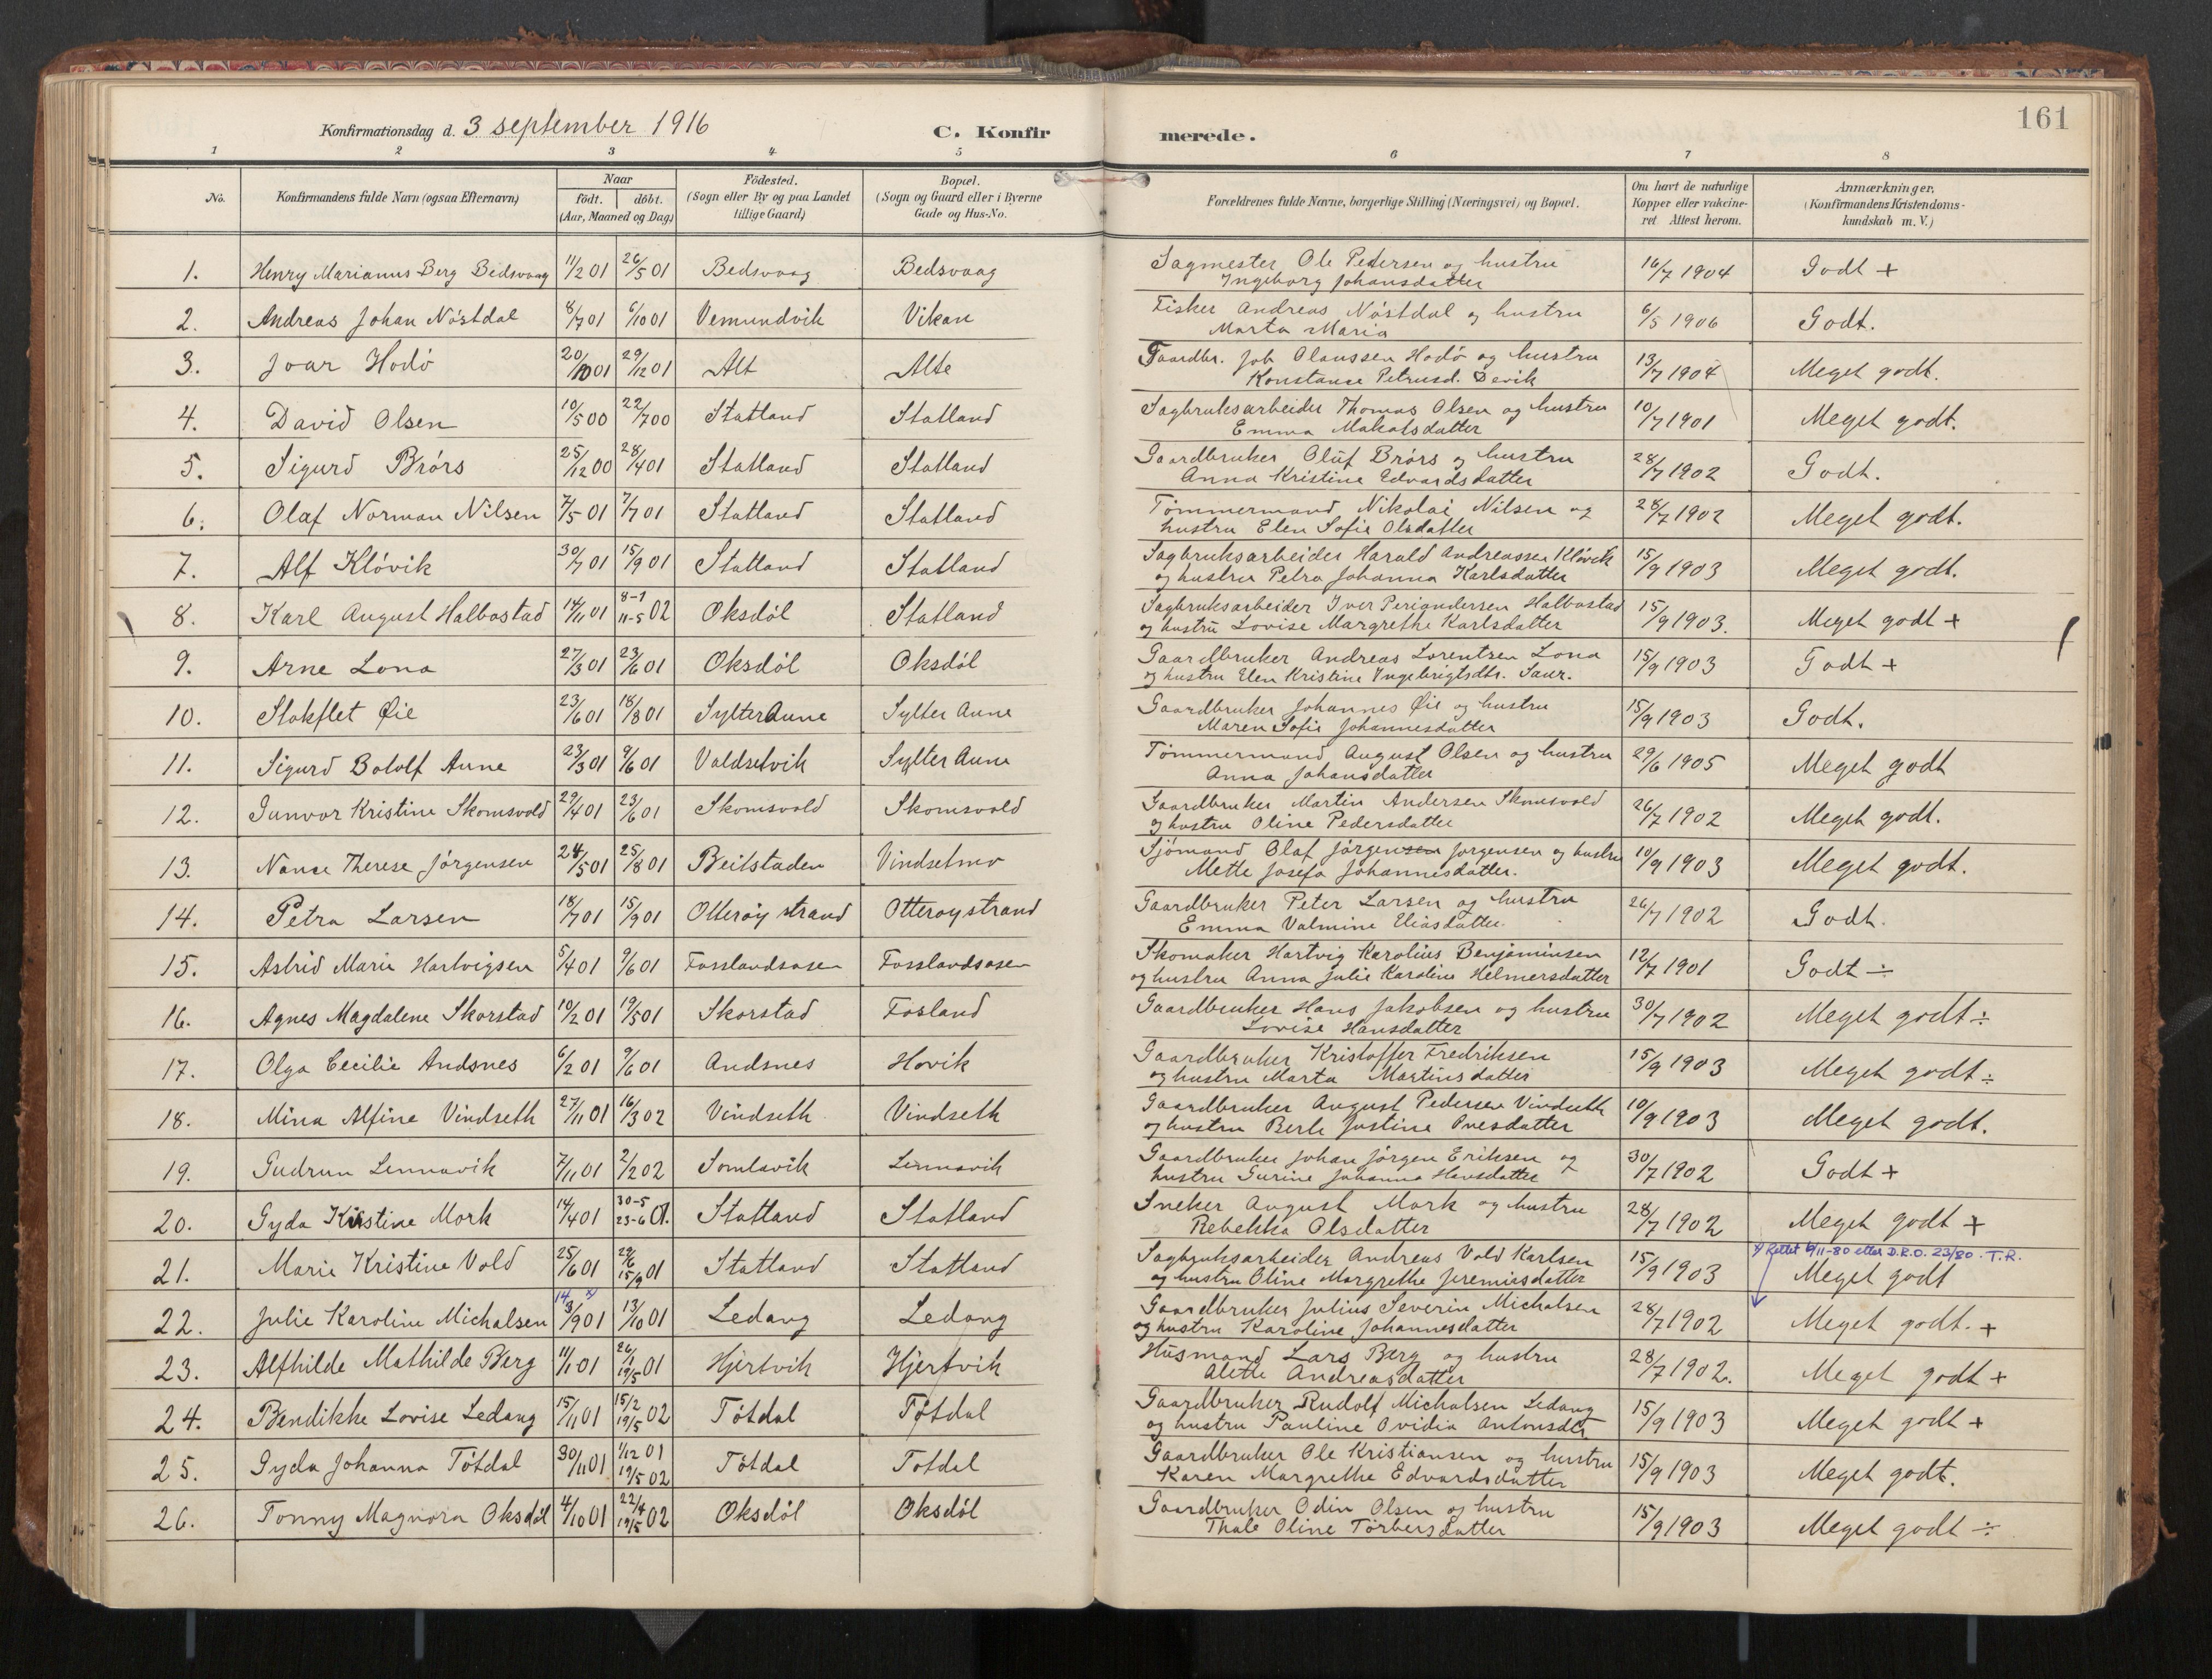 161
Konfirmationsdag d. 3 september 1916 C. Konfirmerede.
1 2 3 4 5 6 7 8
No. Konfirmandens fulde Navn (ogsaa Efternavn) Naar födt. döbt. (Aar, Maaned og Dag) Födested. (Sogn eller By og paa Landet tillige Gaard) Bopæl. (Sogn og Gaard eller i Byerne Gade og Hus-No. Forældrenes fulde Navne, borgerlige Stilling (Næringsvei) og Bopæl. Om havt de naturlige Kopper eller vakcineret Attest herom. Anmærkninger. (Konfirmandens Kristendomskundskab m. V.)
1. Henry Marianus Berg Bedsvaag 11/2 01 26/5 01 Bedsvaag Bedsvaag Sagmester Ole Pedersen og hustru Ingeborg Johansdatter 16/7 1904 Godt +
2. Andreas Johan Nöstdal 8/7 01 6/10 01 Vemundvik Vikan Fisker Andreas Nöstdal og hustru Marta Maria 6/5 1906 Godt.
3. Joar Hodö 20/10 01 29/12 01 Alt Alte Gaardbr. Joh Olaussen Hodö og hustru Konstanse Petrusd. Devik 13/7 1904 Meget godt.
4. David Olsen 10/5 00 22/7 00 Statland Statland Sagbruksarbeider Thomas Olsen og hustru Emma Makalsdatter 10/7 1901 Meget godt.
5. Sigurd Brörs 25/12 00 28/4 01 Statland Statland Gaardbruker Oluf Brörs og hustru Anna Kristine Edvardsdatter 28/7 1902 Godt.
6. Olaf Norman Nilsen 7/5 01 7/7 01 Statland Statland Tömmermand Nikolai Nilsen og hustru Elen Sofie Olsdatter 28/7 1902 Meget godt.
7. Alf Klövik 30/7 01 15/9 01 Statland Statland Sagbruksarbeider Harald Andreassen Klövik og hustru Petra Johanna Karlsdatter 15/9 1903 Meget godt.
8. Karl August Halbostad 14/11 01 8-1 11-5 02 Oksdöl Statland Sagbruksarbeider Iver Periandersen Halbostad og hustru Lovise Margrethe Karlsdatter 15/9 1903. Meget godt +
9. Arne Lona 27/3 01 23/6 01 Oksdöl Oksdöl Gaardbruker Andreas Lorentsen Lona og hustru Elen Kristine Ingebrigtsdtr. Saur. 15/9 1903 Godt +
10. Stokflet Øie 23/6 01 18/8 01 Sylter Aune Sylter Aune Gaardbruker Johannes Øie og hustru Maren Sofie Johannesdatter 15/9 1903 Godt.
11. Sigurd Botolf Aune 23/3 01 9/6 01 Valdsetvik Sylter Aune Tömmermand August Olsen og hustru Anna Johansdatter 29/6 1905 Meget godt
12. Gunvor Kristine Skomsvold 29/4 01 23/6 01 Skomsvold Skomsvold Gaardbruker Martin Andersen Skomsvold og hustru Oline Pedersdatter 26/7 1902 Meget godt.
13. Nanse Therese Jörgensen 24/5 01 25/8 01 Beitstaden Vindsetmo Sjömand Olaf Jörgensen Jorgensen og hustru Mette Josefa Johannesdatter. 10/9 1903 Meget godt.
14. Petra Larsen 18/7 01 15/9 01 Otteröy strand Otteroystrand Gaardbruker Peter Larsen og hustru Emma Valmine Eliasdatter. 26/7 1902 Godt.
15. Astrid Marie Hartvigsen 5/4 01 9/6 01 Fosslandsosen Fosslandsosen Skomaker Hartvig Karolius Benjaminsen og hustru Anna Julie Karoline Helmersdatter 12/7 1901 Godt ÷
16. Agnes Magdalene Skorstad 10/2 01 19/5 01 Skorstad Fosland Gaardbruker Hans Jakobsen og hustru Lovise Hansdatter 30/7 1902 Meget godt ÷
17. Olga Cecilie Andsnes 6/2 01 9/6 01 Andsnes Hovik Gaardbruker Kristoffer Fredriksen og hustru Marta Martinsdatter 15/9 1903 Meget godt ÷
18. Mina Alfine Vindseth 27/11 01 16/3 02 Vindseth Vindseth Gaardbruker August Pedersen Vindseth og hustru Berle Justine Ovesdatter 10/9 1903 Meget godt.
19. Gudrun Lennavik 7/11 01 2/2 02 Somlavik Lennavik Gaardbruker Johan Jörgen Eriksen og hustru Gurine Johanna Hansdatter 30/7 1902 Godt +
20. Gyda Kristine Mork 14/4 01 30-5 23-6 01. Statland Statland Sneker August Mork og hustru Rebekka Olsdatter 28/7 1902 Meget godt +
21. Marie Kristine Vold 25/6 01 29/6 15/9 01 Statland Statland Sagbruksarbeider Andreas Vold Karlsen og hustru Oline Margrethe Jeremiasdatter 15/9 1903 x) Rettet 6/11-80 etter D.R.O. 23/80. T.R. Meget godt
22. Julie Karoline Michalsen 14 x) 3/9 01 13/10 01 Ledang Ledang Gaardbruker Julius Severin Michalsen og hustru Karoline Johannesdatter 28/7 1902 Meget godt. +
23. Alfhilde Mathilde Berg 11/1 01 26/1 19/5 01 Hjertvik Hjertvik Husmand Lars Berg og hustru Alette Andreasdatter 28/7 1902. Meget godt +
24. Bendikke Lovise Ledang 15/11 01 15/2 19/5 02 Tötdal Tötdal Gaardbruker Rudolf Michalsen Ledang og hustru Pauline Ovidia Antonsdtr 15/9 1903 Meget godt +
25. Gyda Johanna Tötdal 30/11 01 1/12 01 19/5 02 Tötdal Totdal Gaardbruker Ole Kristiansen og hustru Karen Margrethe Edvardsdatter 15/9 1903 Meget godt.
26. Tonny Magnora Oksdöl 4/10 01 22/4 19/5 02 Oksdöl Oksdöl Gaardbruker Odin Olsen og hustru Thale Oline Törbersdatter 15/9 1903 Meget godt ÷